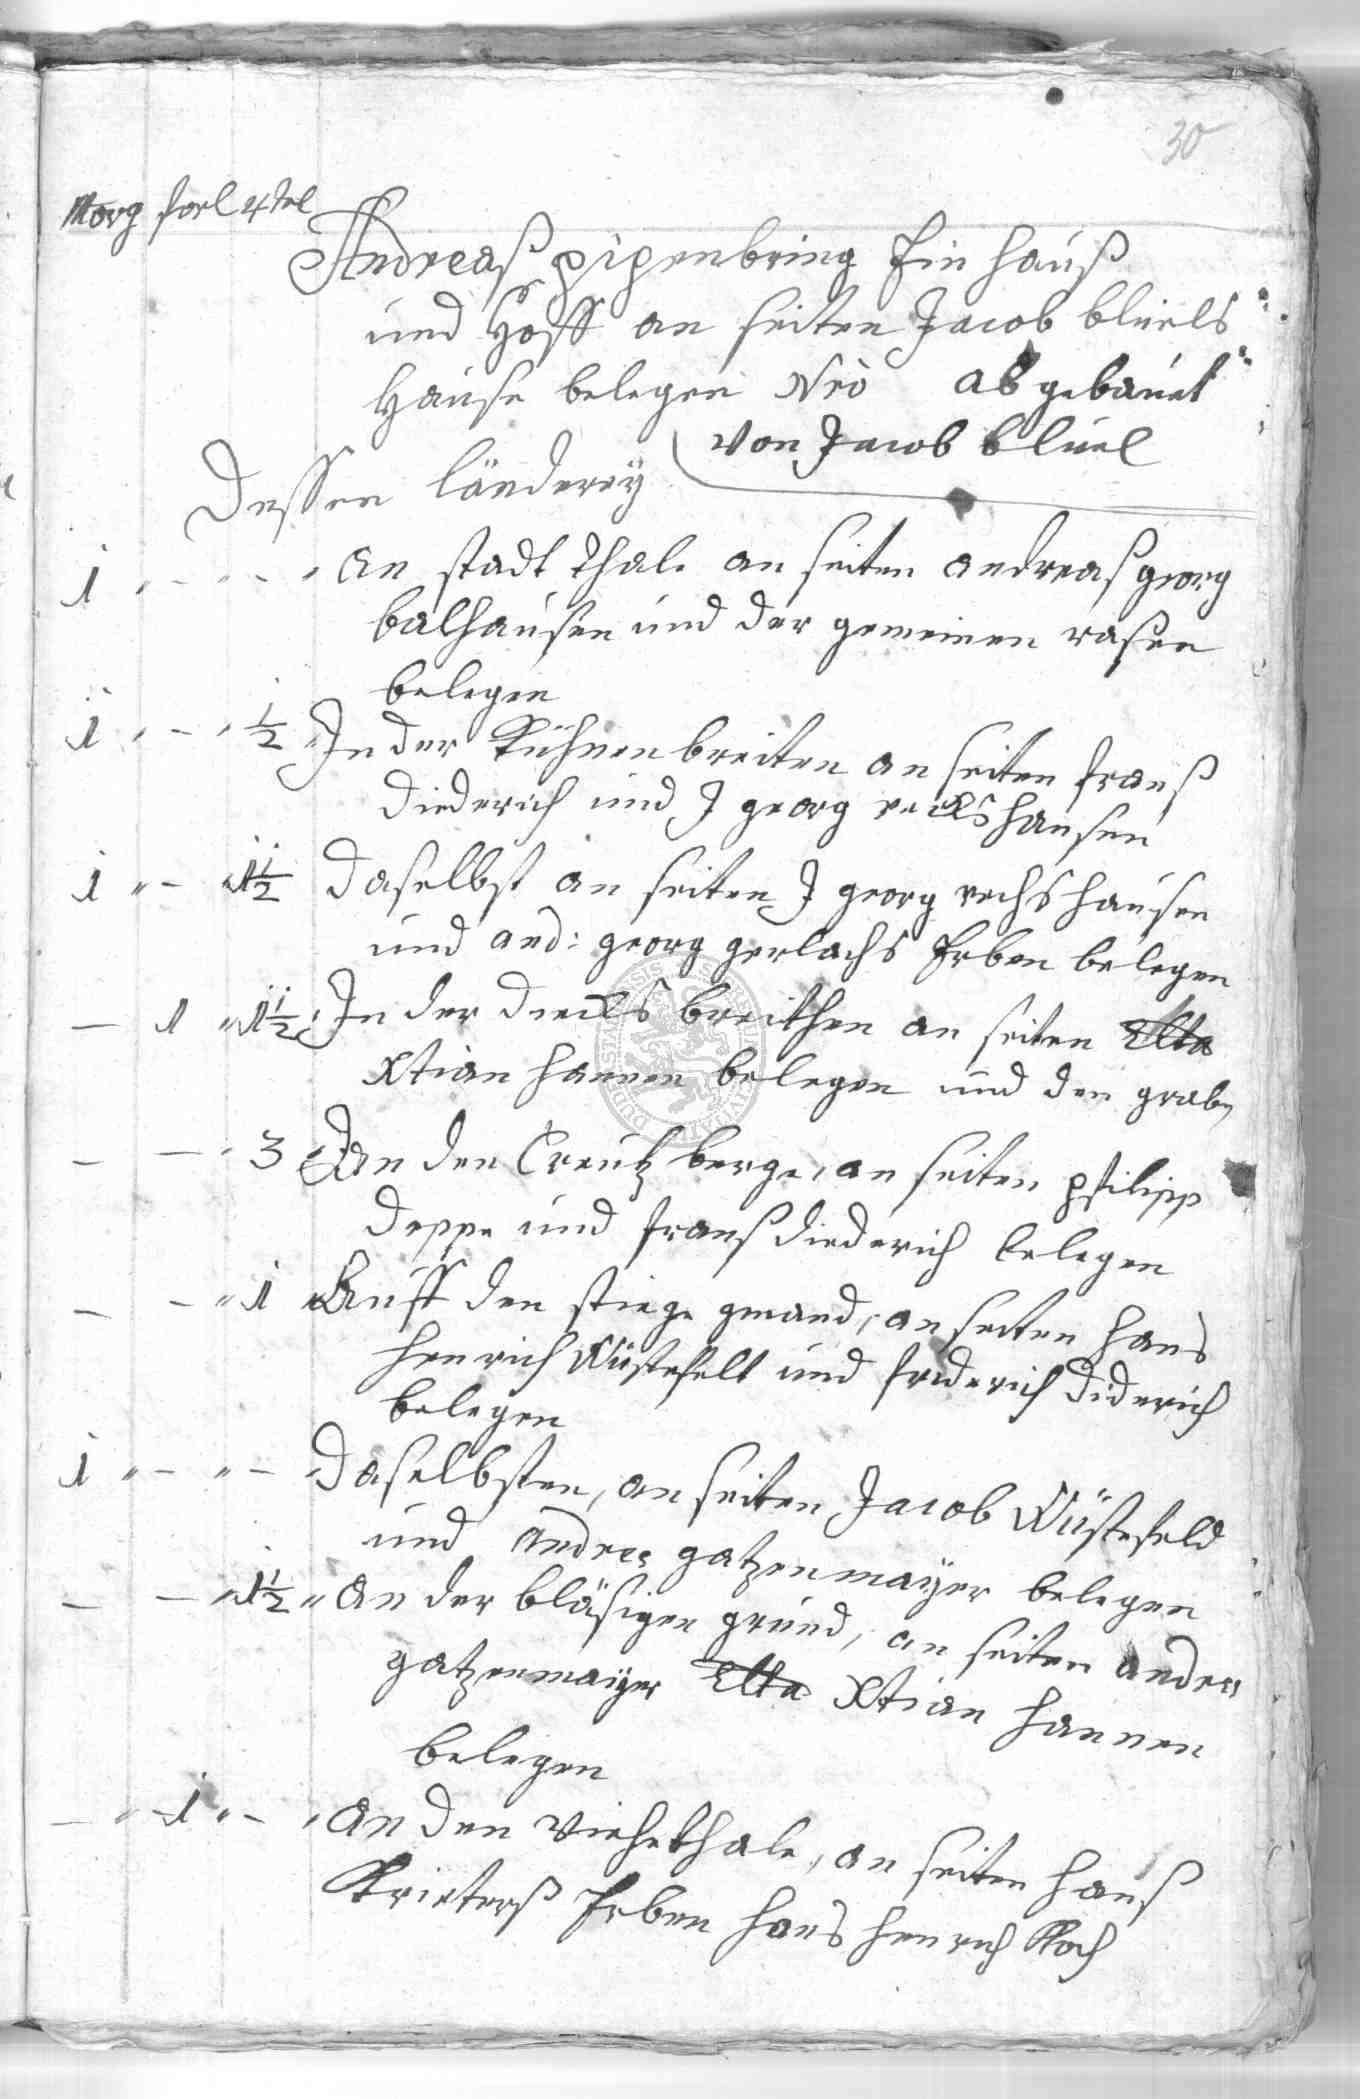 30
Morg forl 4tel
Andreaß pipenbring Ein hauß
und Hoff an seiten Jacob bluels
Hause belegen Nro abgebauet
von Jacob bluel
Dessen länderey
1 " - " - " an stadt thale an seiten andreaß georg
balhausen und der gemeinen rasen
belegen
1 " - " ½ In der Kuhnen breiten an seiten franß
Diederich und J georg reckshausen
1 " - " 1½ Daselbst an seiten J georg rechshausen
und and: georg gerlachs Erben belegen
- 1 " 1½ In der diecks breithen an seiten
Xtian hannen belegen und den graben
- - " 3 An den Creutz berge, an seiten philipp
Deppe und franß diederich belegen
- - " 1 Auff den stiege gwand, an seiten hans
henrich Wüstefelt und friderich Diderich
belegen
1 " - " - Daselbsten, an seiten Jacob Wüstefeld
und Andres gatzenmayer belegen
- - " 1½ " An der bläsigen grund, an seiten andres
gatzenmayer Xtian hannen
belegen
- " 1 " - " an den viehethale, an seiten hanß
Krieterß Erben hans henrich Koch